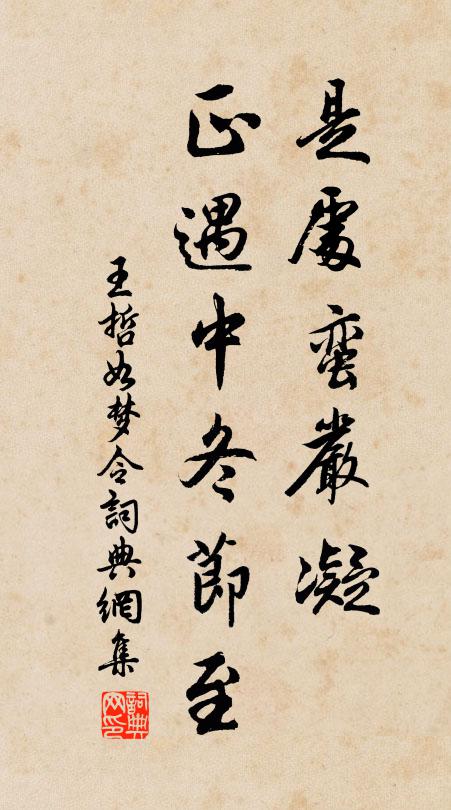 是處蛮嚴凝
正遇中冬節至
王哲如梦令詞典網集
詞典网印